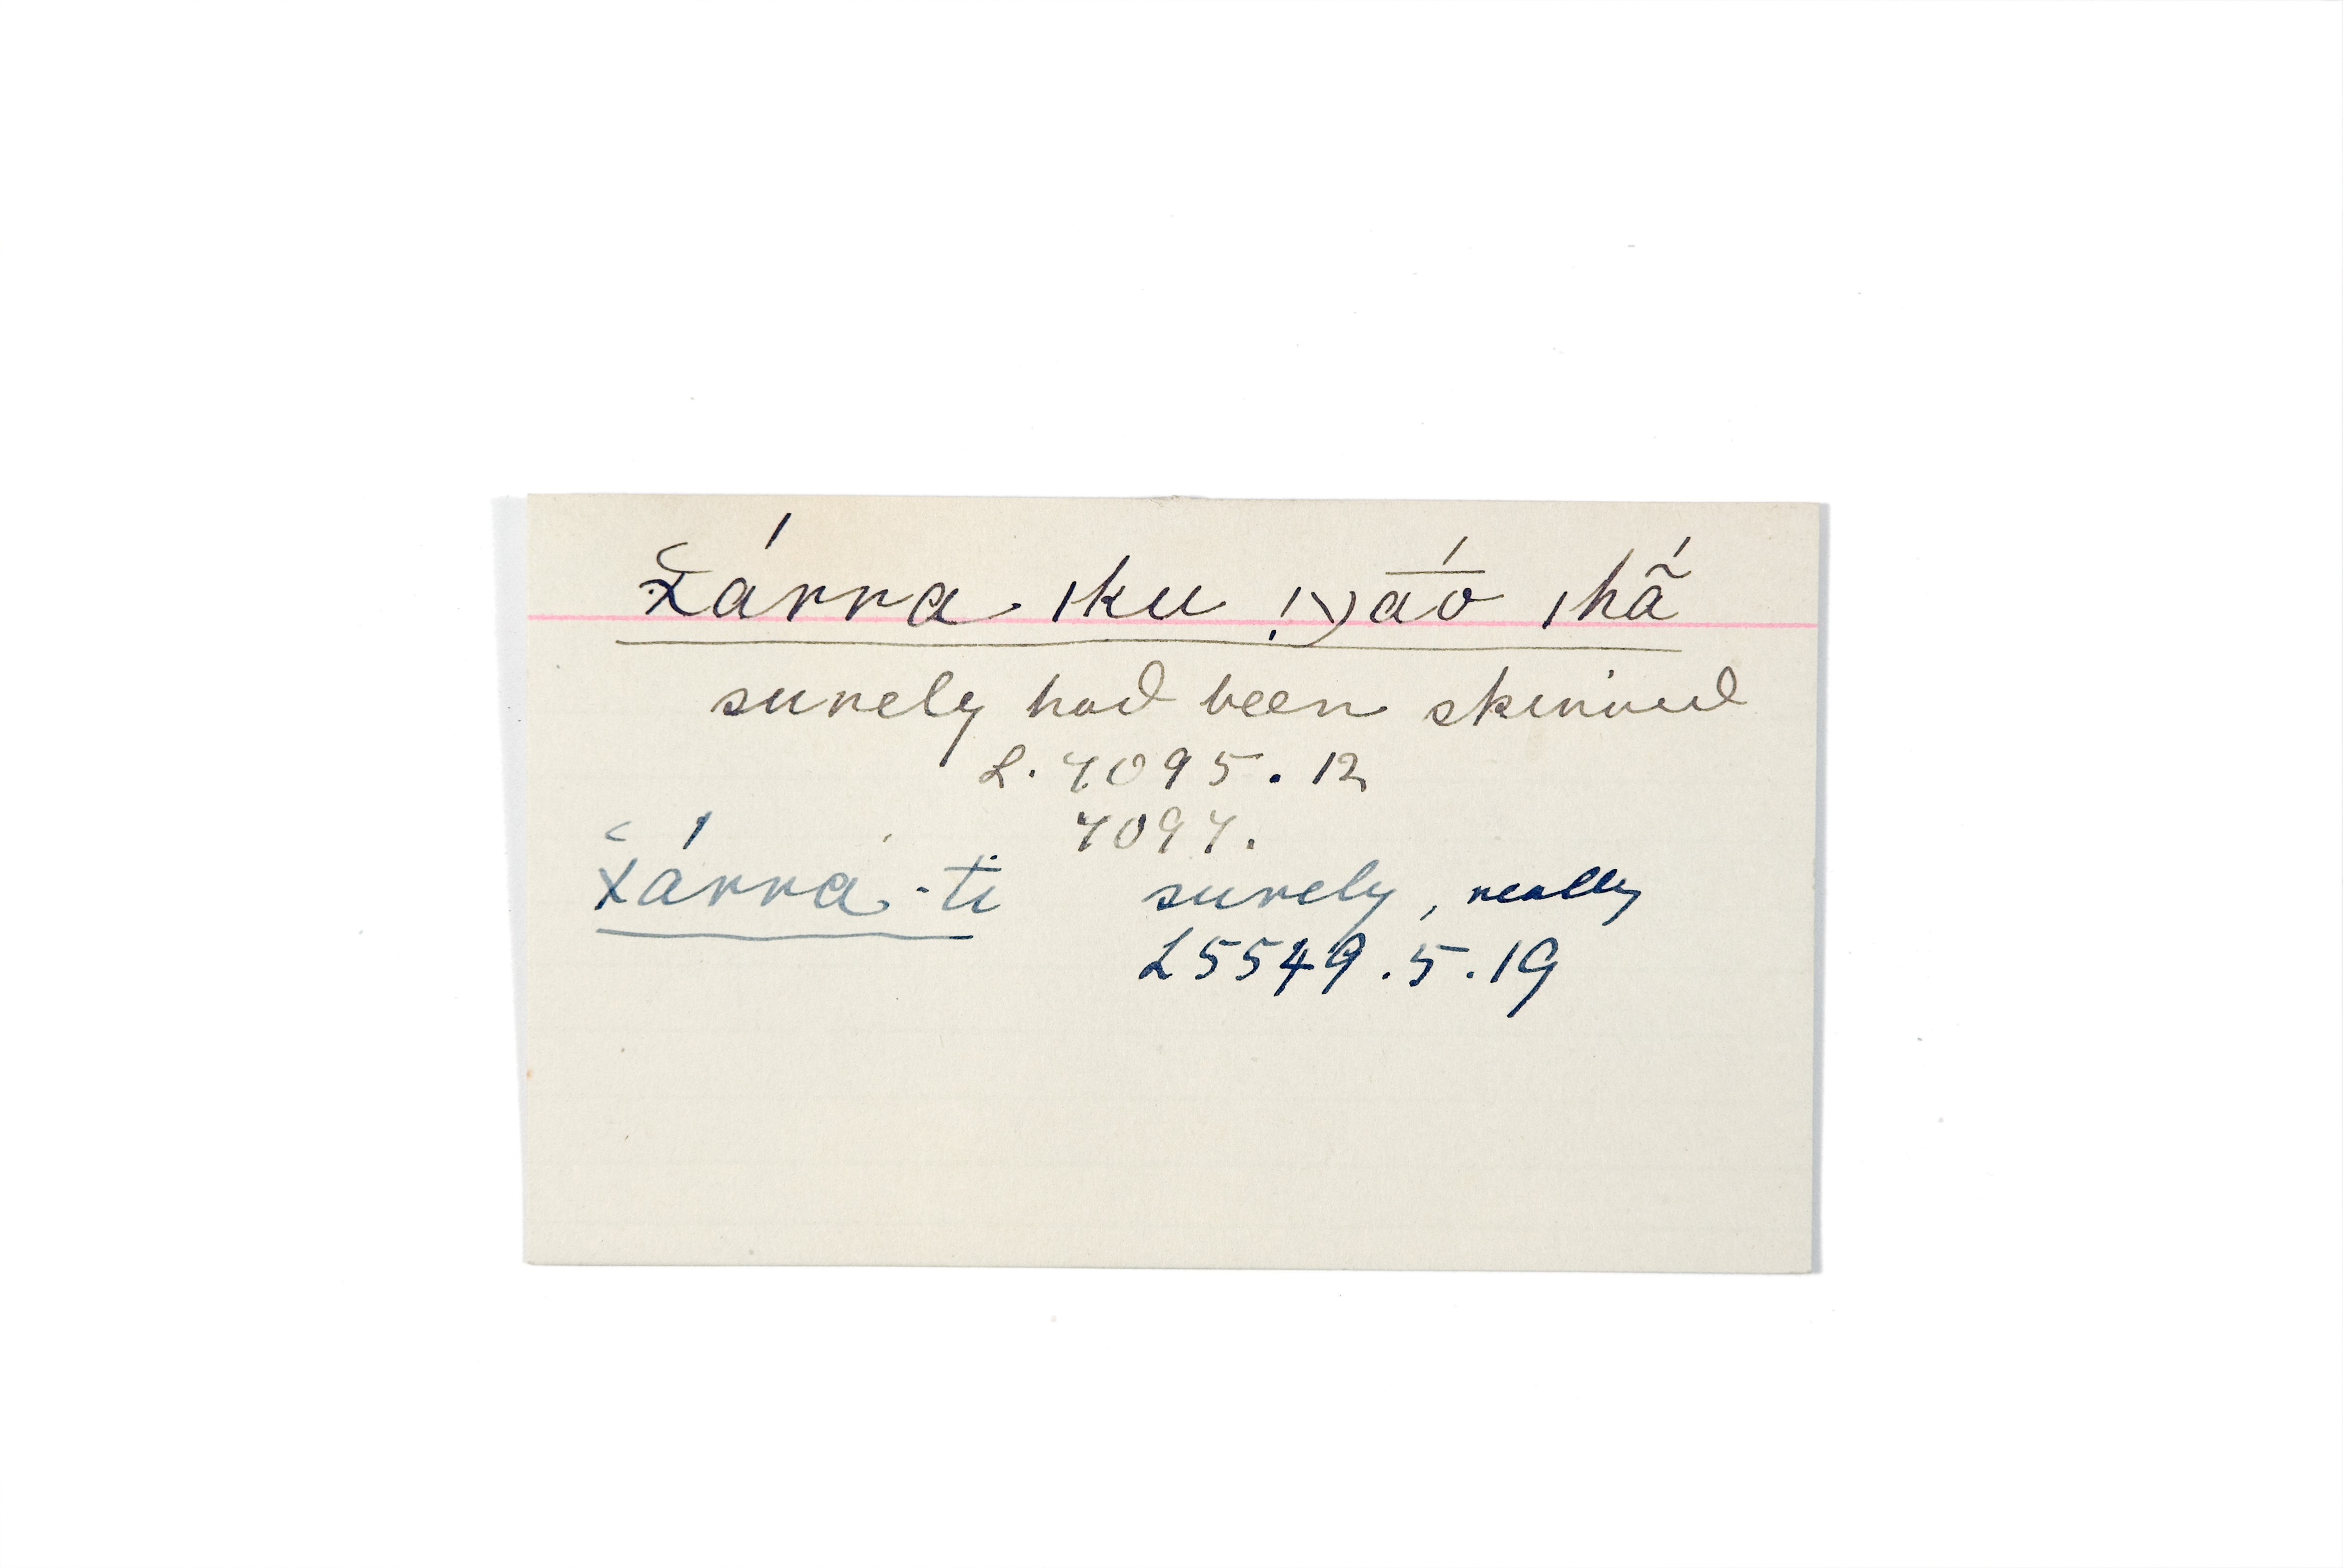 χárra iku !χáo ihã́
surely had been skinned
L. 4095. 12
4094.
χárra-ti surely, really
L5549.5.19